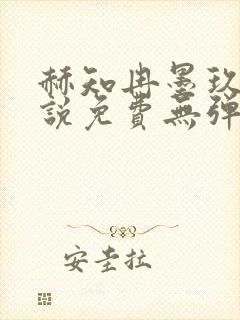 赫知冉墨玖
說免費無彈
安圭拉